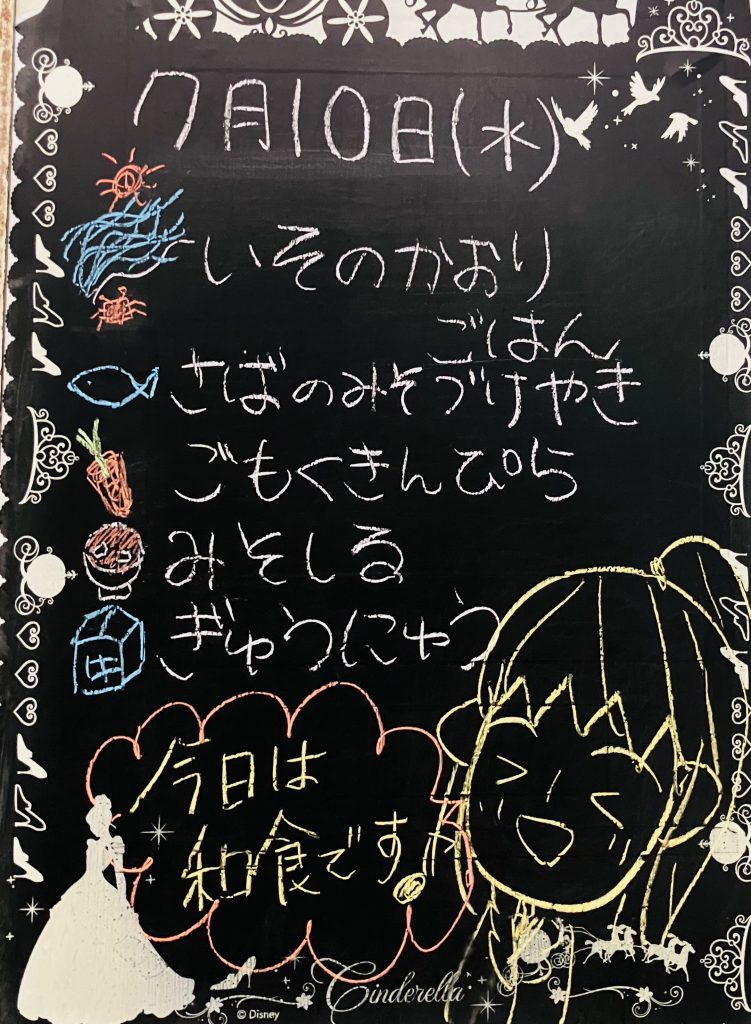 7月10日(水)
いそのかおり
ごはん
さばのみそづけやき
ごもくきんぴら
みそしる
ぎゅうにゅう
今日は
和食です!
Cinderella
© Disney